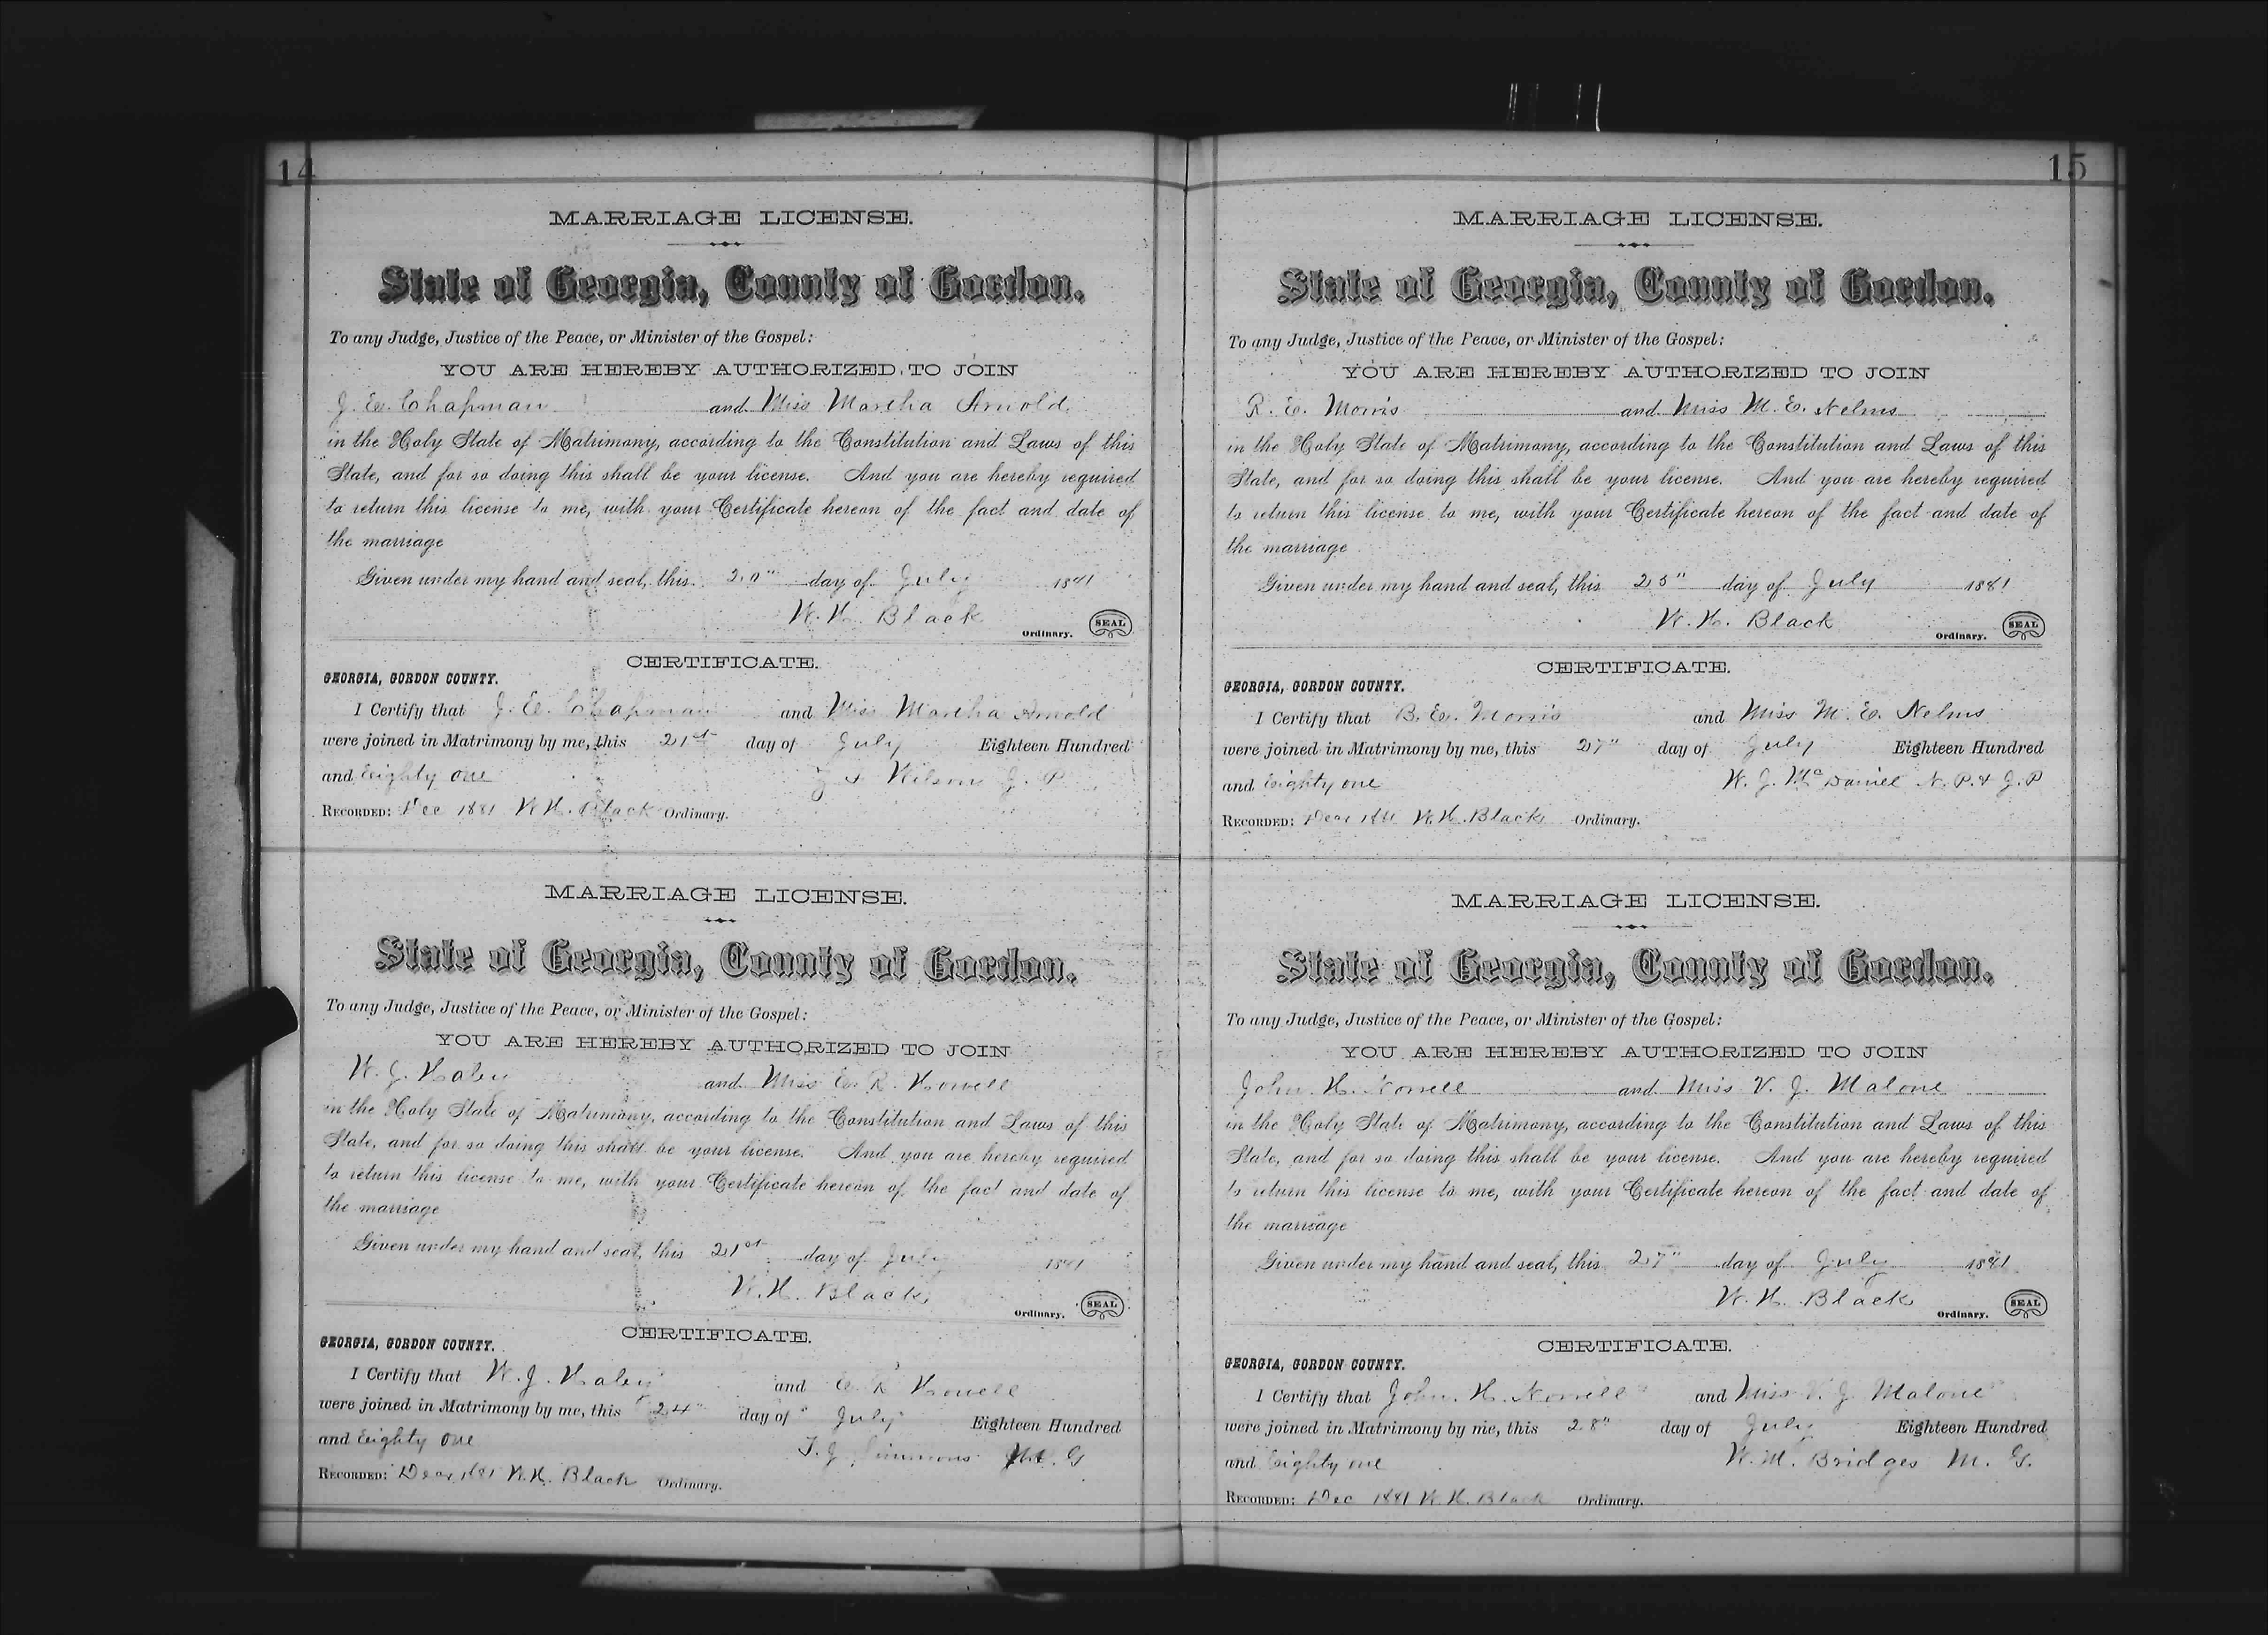 14
MARRIAGE LICENSE.
State of Georgia, County of Gordon.
To any Judge, Justice of the Peace, or Minister of the Gospel:
YOU ARE HEREBY AUTHORIZED TO JOIN
J. E. Chapman and Miss Martha Arnold
in the Holy State of Matrimony, according to the Constitution and Laws of this
State, and for so doing this shall be your license. And you are hereby required
to return this license to me, with your Certificate hereon of the fact and date of
the marriage
Given under my hand and seal, this 20" day of July 1881
W. H. Black
Ordinary. SEAL
CERTIFICATE.
GEORGIA, GORDON COUNTY.
I Certify that J. E. Chapman and Miss Martha Arnold
were joined in Matrimony by me, this 21st day of July Eighteen Hundred
and Eighty one Wilson J. P.
RECORDED: Dec 1881 W. H. Black Ordinary.
MARRIAGE LICENSE.
State of Georgia, County of Gordon.
To any Judge, Justice of the Peace, or Minister of the Gospel:
YOU ARE HEREBY AUTHORIZED TO JOIN
W. J. Haley and Miss E. R. Howell
in the Holy State of Matrimony, according to the Constitution and Laws of this
State, and for so doing this shall be your license. And you are hereby required
to return this license to me, with your Certificate hereon of the fact and date of
the marriage
Given under my hand and seal, this 21st day of July 1881
W. H. Black
Ordinary. SEAL
CERTIFICATE.
GEORGIA, GORDON COUNTY.
I Certify that W. J. Haley and E R Howell
were joined in Matrimony by me, this 24" day of July Eighteen Hundred
and Eighty one T. J. Simmons M. G
RECORDED: Dec 1881 W. H. Black Ordinary.
15
MARRIAGE LICENSE.
State of Georgia, County of Gordon.
To any Judge, Justice of the Peace, or Minister of the Gospel:
YOU ARE HEREBY AUTHORIZED TO JOIN
R. E. Morris and Miss M. E. Nelms
in the Holy State of Matrimony, according to the Constitution and Laws of this
State, and for so doing this shall be your license. And you are hereby required
to return this license to me, with your Certificate hereon of the fact and date of
the marriage
Given under my hand and seal, this 25" day of July 1881
W. H. Black
Ordinary. SEAL
CERTIFICATE.
GEORGIA, GORDON COUNTY.
I Certify that B. E. Morris and Miss M. E. Nelms
were joined in Matrimony by me, this 27" day of July Eighteen Hundred
and Eighty one W. J. McDaniel N. P. & J. P
RECORDED: Dec 1881 W. H. Black Ordinary.
MARRIAGE LICENSE.
State of Georgia, County of Gordon.
To any Judge, Justice of the Peace, or Minister of the Gospel:
YOU ARE HEREBY AUTHORIZED TO JOIN
John H. Norrell and Miss V. J. Malone
in the Holy State of Matrimony, according to the Constitution and Laws of this
State, and for so doing this shall be your license. And you are hereby required
to return this license to me, with your Certificate hereon of the fact and date of
the marriage
Given under my hand and seal, this 27" day of July 1881
W. H. Black
Ordinary. SEAL
CERTIFICATE.
GEORGIA, GORDON COUNTY.
I Certify that John H. Norrell and Miss V. J. Malone
were joined in Matrimony by me, this 28" day of July Eighteen Hundred
and Eighty one W. M. Bridges M. G.
RECORDED: Dec 1881 W. H. Black Ordinary.